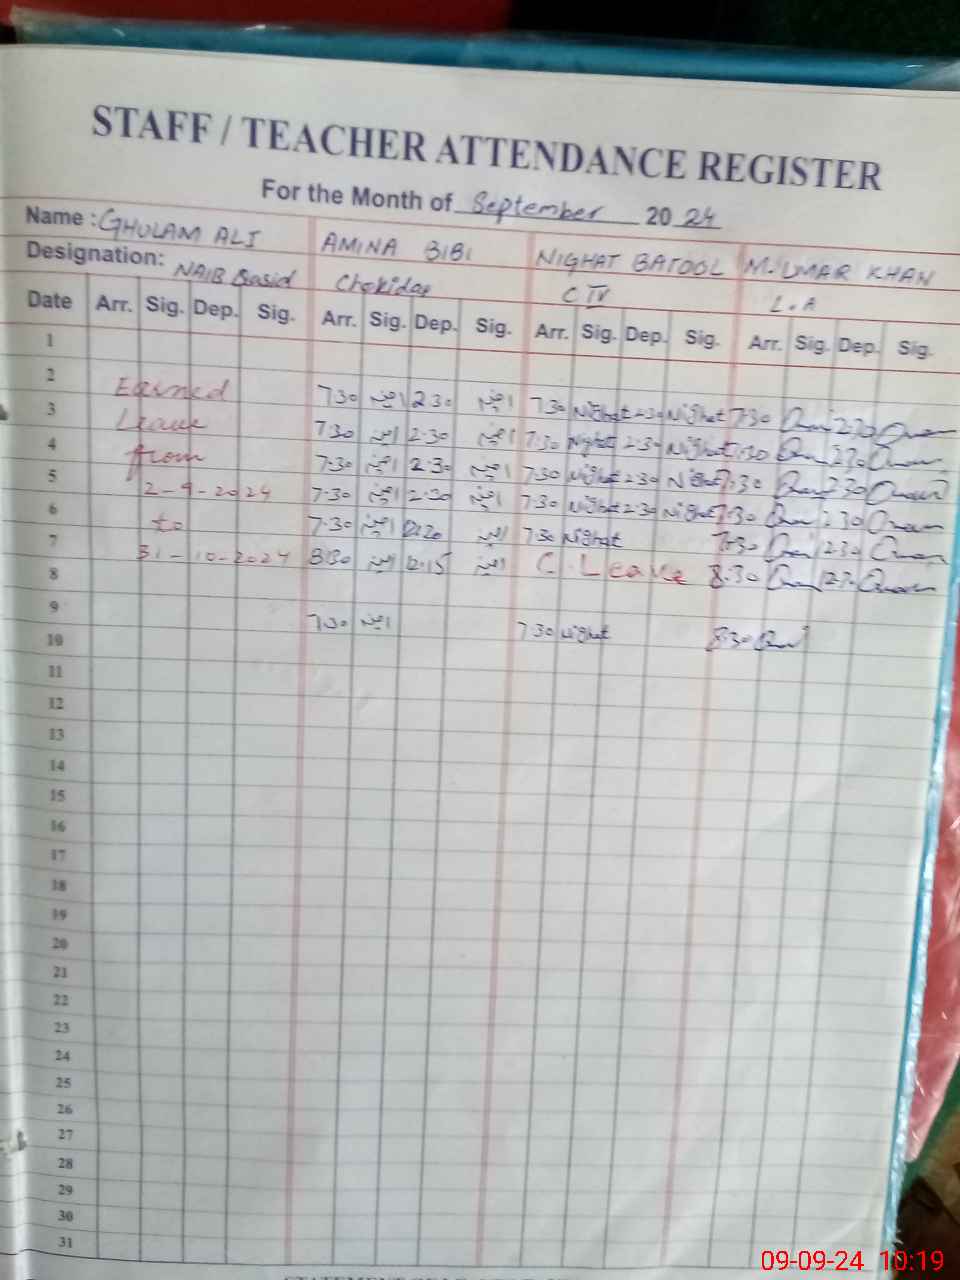 STAFF / TEACHER ATTENDANCE REGISTER
For the Month of September 2024
Name : GHULAM ALI AMINA BIBI NIGHAT BATOOL M. UMAR KHAN
Designation: NAIB Qasid Chokidar CTI L.A
Date Arr. Sig. Dep. Sig. Arr. Sig. Dep. Sig. Arr. Sig. Dep. Sig. Arr. Sig. Dep. Sig.
1
2 Earned 7:30 امینہ 2:30 امینہ 7:30 Nighat 2:30 Nighat 7:30 2:30
3 Leave 7:30 امینہ 2:30 امینہ 7:30 Nighat 2:30 Nighat 7:30 2:30
4 from 7:30 امینہ 2:30 امینہ 7:30 Nighat 2:30 Nighat 7:30 2:30
5 2-9-2024 7:30 امینہ 2:30 امینہ 7:30 Nighat 2:30 Nighat 7:30 2:30
6 to 7:30 امینہ امینہ 7:30 Nighat 7:30 12:30
7 31-10-2024 8:30 امینہ 12:15 امینہ C. Leave 8:30
8
9 7:30 امینہ 7:30 Nighat 8:30
10
11
12
13
14
15
16
17
18
19
20
21
22
23
24
25
26
27
28
29
30
31
09-09-24 10:19